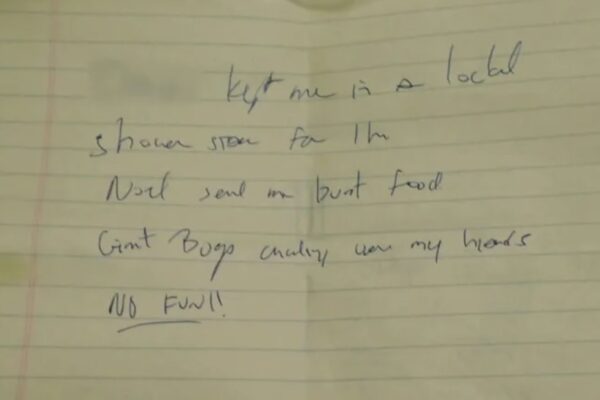 Kept me in a locked
shower stall for 1 hr
Noel sent me burnt food
Giant Bugs crawling over my hands
NO FUN!!